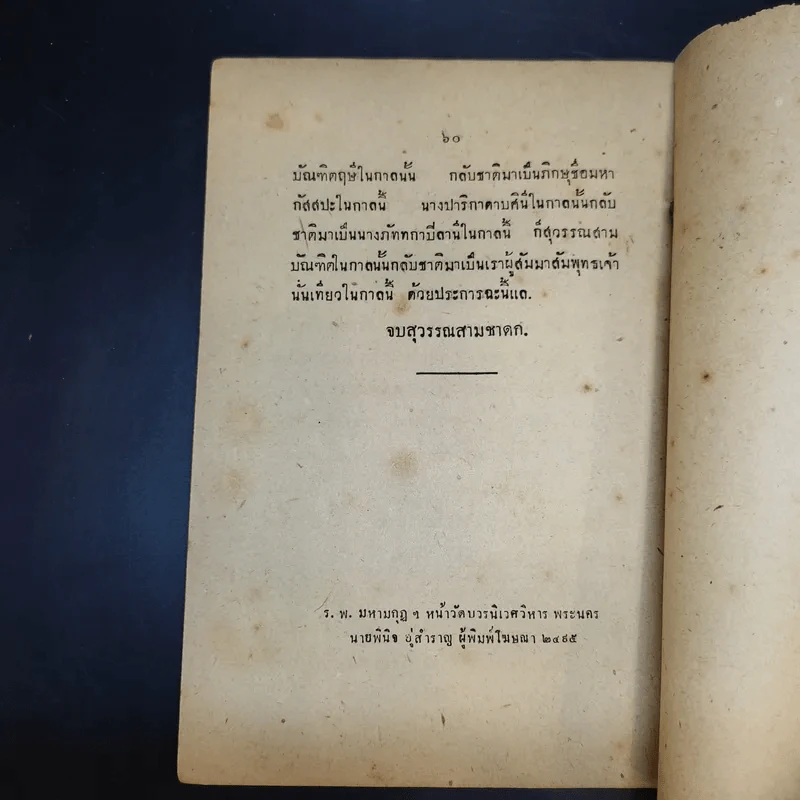 ๖๐
บัณฑิตฤษีในกาลนั้น กลับชาติมาเป็นภิกษุชื่อมหา
กัสสปะในกาลนี้ นางปาริกาดาบศินีในกาลนั้นกลับ
ชาติมาเป็นนางภัททกาปิลานีในกาลนี้ ก็สุวรรณสาม
บัณฑิตในกาลนั้นกลับชาติมาเป็นเราผู้สัมมาสัมพุทธเจ้า
นั่นเทียวในกาลนี้ ด้วยประการฉะนี้แล.
จบสุวรรณสามชาดก.
ร. พ. มหามกุฏ ฯ หน้าวัดบวรนิเวศวิหาร พระนคร
นายพินิจ อู่สำราญ ผู้พิมพ์โฆษณา ๒๔๙๕